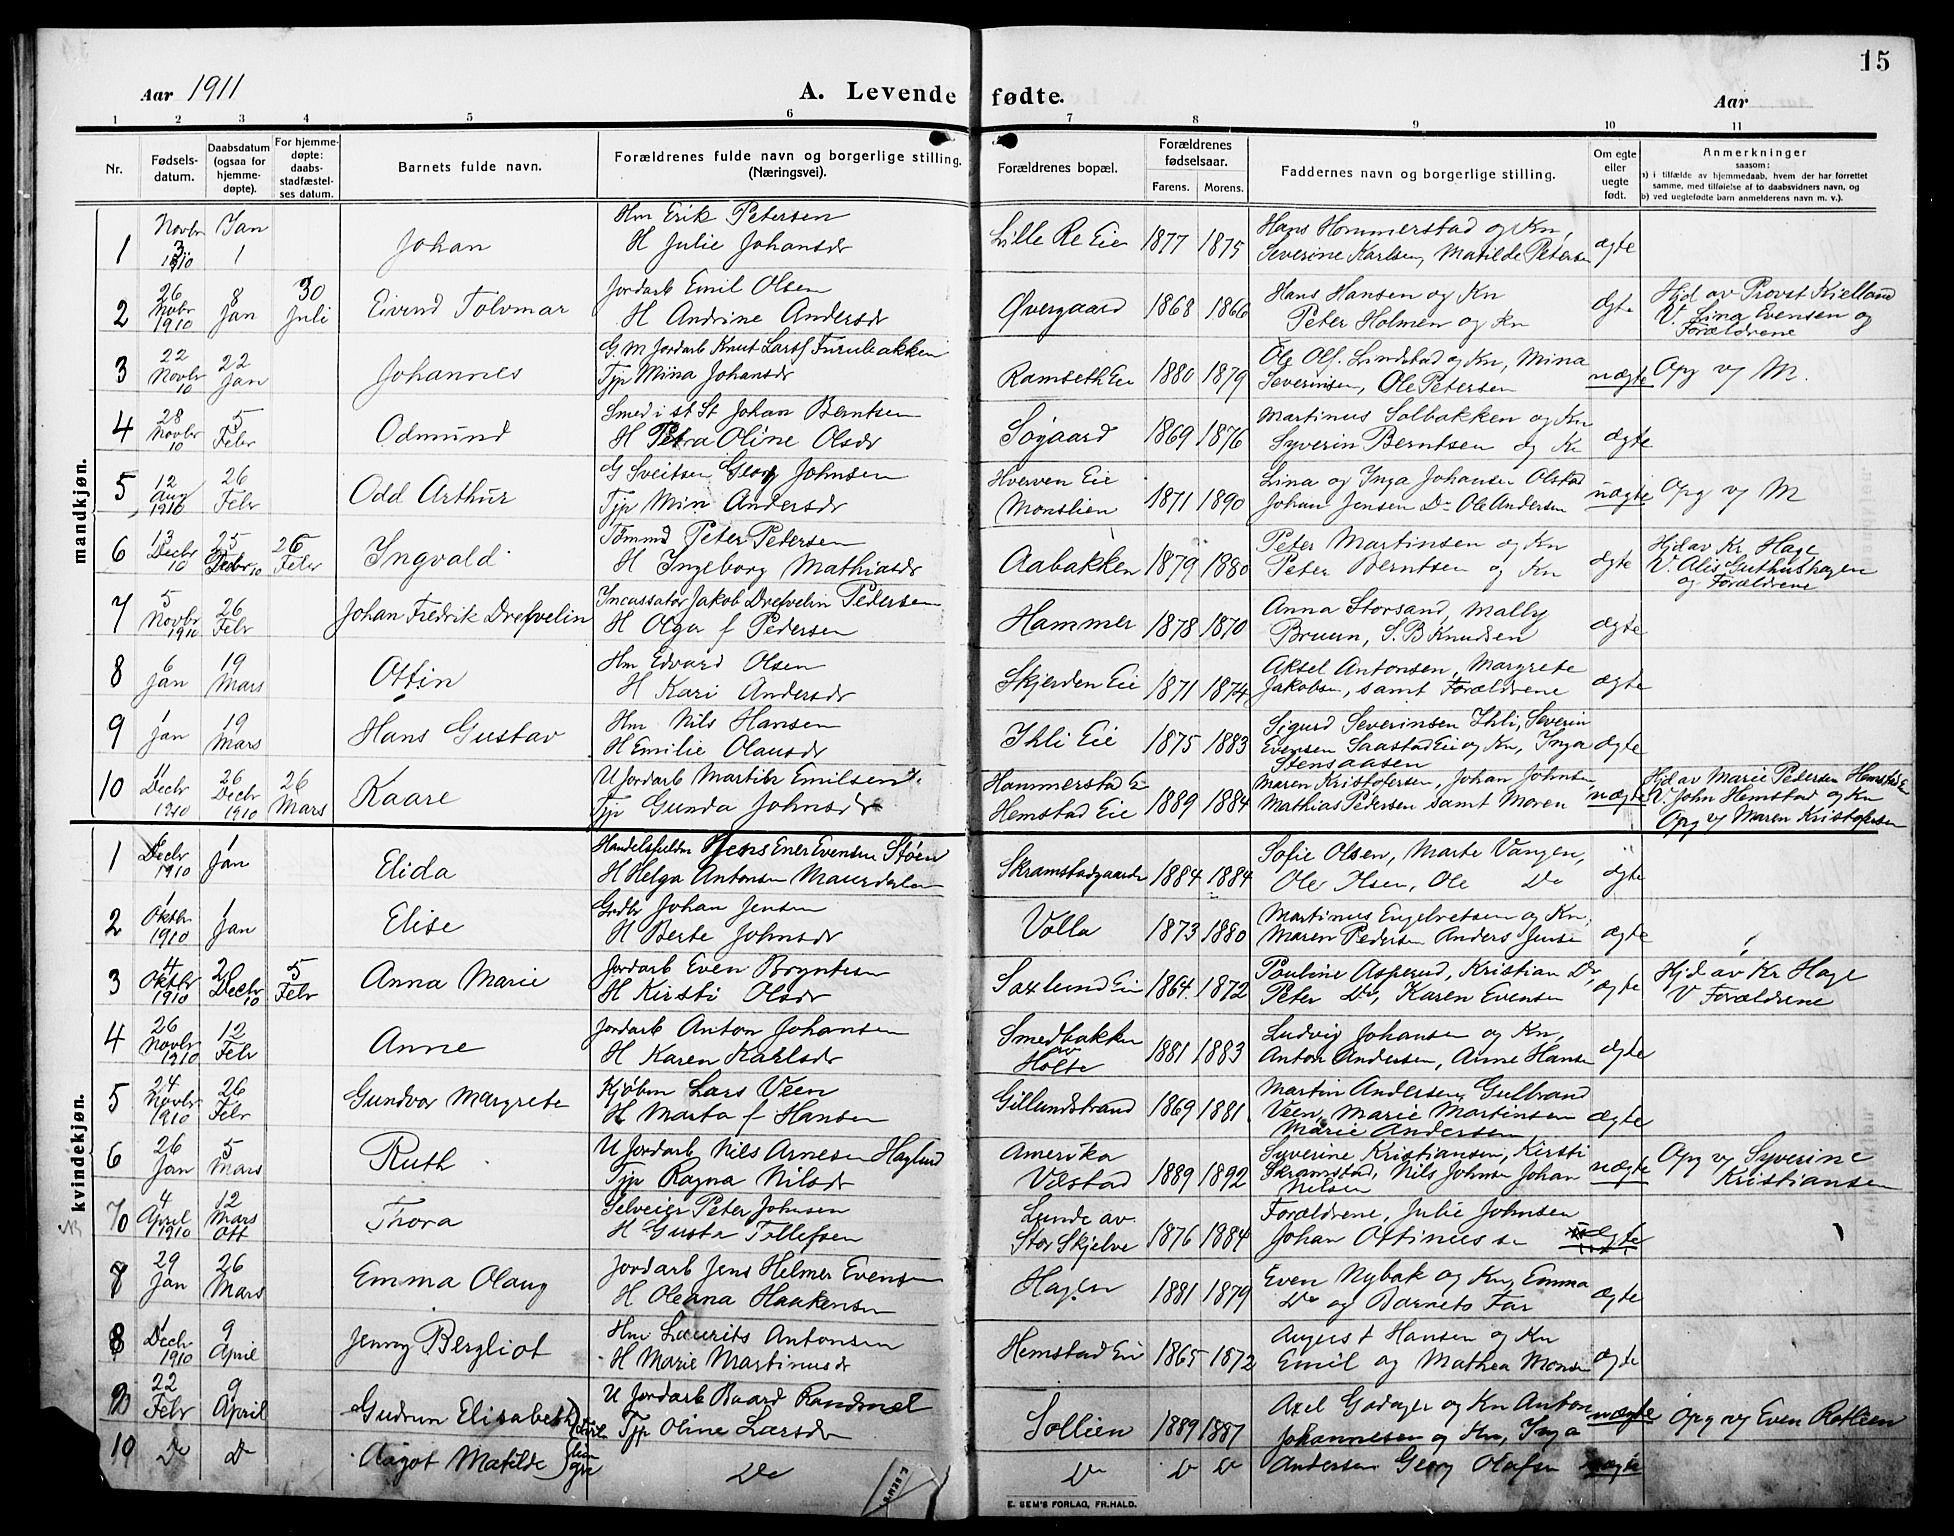 15
Aar 1911
A. Levende fødte.
Aar
1 2 3 4 5 6 7 8 9 10 11
Nr.
Fødsels-
datum.
Daabsdatum
(ogsaa for
hjemme-
døpte).
For hjemme-
døpte:
daabs-
stadfæstel-
ses datum.
Barnets fulde navn.
Forældrenes fulde navn og borgerlige stilling.
(Næringsvei).
Forældrenes bopæl.
Forældrenes
fødselsaar.
Farens. Morens.
Faddernes navn og borgerlige stilling.
Om egte
eller
uegte
født.
Anmerkninger
saasom:
a) i tilfælde av hjemmedaab, hvem der har forrettet
samme, med tilføielse af to daabsvidners navn, og
b) ved uegtefødte barn anmelderens navn m. v.).
mandkjøn.
1 Novbr 3 1910 Jan 1 Johan
Hm Erik Petersen
H Julie Johansdr
Lille Re Eie 1877 1875
Hans Hommerstad og Kn,
Severine Karlsen, Matilde Petersen ægte
2 26 Novbr 1910 8 Jan 30 Juli Eivind Tolvmar
Jordarb Emil Olsen
H Andrine Andersdr
Øvergaard 1868 1866
Hans Hansen og Kn
Peter Holmen og Kn ægte
Hjd av Provst Kielland
V. Lina Evensen og
Forældrene
3 22 Novbr 10 22 Jan Johannes
G. M Jordarb Knut Larsf Furubakken
Tjp Mina Johansdr
Ramseth Eie 1880 1879
Ole Olf. Lindstad og Kn, Mina
Severinsen, Ole Petersen uægte Opg v M.
4 28 Novbr 10 5 Febr Odmund
Smed i st St Johan Berntsen
H Petra Oline Olsdr
Søgaard 1869 1876
Martinus Solbakken og Kn
Syverin Berntsen og Kn ægte
5 12 Aug 1910 26 Febr Odd Arthur
G Sveitser Georg Johnsen
Tjp Min Andersdr
Hverven Eie
Monslien 1871 1890
Lina og Inga Johansen Olstad
Johan Jensen Do Ole Andersen uægte Opg v M
6 13 Decbr 10 25 Decbr 10 26 Febr Ingvald
Tømmd Peter Petersen
H Ingeborg Mathiasdr
Aabakken 1879 1880
Peter Martinsen og Kn
Peter Berntsen og Kn ægte
Hjd av Kr Hage
V. Alis Guthushagen
og Forældrene
7 5 Novbr 1910 26 Febr Johan Fredrik Drefvelin
Incassator Jakob Drefvelin Pedersen
H Olga f Pedersen
Hammer 1878 1870
Anna Storsand, Mally
Bruun, S. B Knudsen ægte
8 6 Jan 19 Mars Ottin
Hm Edvard Olsen
H Kari Andersdr
Skjerden Eie 1871 1874
Aksel Antonsen, Margrete
Jakobsen, samt Forældrene ægte
9 1 Jan 19 Mars Hans Gustav
Hm Nils Hansen
H Emilie Olausdr
Ihli Eie 1875 1883
Sigurd Severinsen Ihli, Severin
Evensen Saastad Eie og Kn, Inga
Stensaasen ægte
10 11 Decbr 1910 26 Decbr 1910 26 Mars Kaare
U Jordarb Martin Emilsen
Tjp Gunda Johnsdr
Hammerstad E
Hemstad Eie 1889 1884
Maren Kristofersen, Johan Johnsen
Mathias Pedersen samt Moren uægte
Hjd av Marie Pedersen Hemstad E
V. John Hemstad og Kn
Opg v Maren Kristofersen
kvindekjøn.
1 Decbr 1910 1 Jan Elida
Handelsfuldm Jens Ener Evensen Støen
H Helga Antonsen
Skramstadgaarde 1884 1884
Sofie Olsen, Marte Vangen,
Ole Olsen, Ole Do ægte
2 1 Oktbr 1910 1 Jan Elise
Grdbr Johan Jensen
H Berte Johnsdr
Volla 1873 1880
Martinus Engebretsen og Kn,
Maren Pedersen Anders Jensen ægte
3 4 Oktbr 1910 Decbr 10 5 Febr Anna Marie
Jordarb Even Bryntesen
H Kirsti Olsdr
Saxlund Eie 1864. 1872
Pauline Asperud, Kristian Do,
Peter Do, Karen Evensen ægte
Hjd av Kr Hage
V Forældrene
4 26 Novbr 1910 12 Febr Anne
Jordarb Anton Johansen
H Karen Karlsdr
Smedbakken
av
Holte 1881 1883
Ludvig Johansen og Kn,
Anton Andersen, Anne Hansen ægte
5 24 Novbr 1910 26 Febr Gundvor Margrete
Kjøbm Lars Veen
H Marta f Hansen
Gillundstrand 1869 1881
Martin Andersen, Gulbrand
Veen, Marie Martinsen
Marie Andersen ægte
6 26 Jan 5 Mars Ruth
U Jordarb Nils Arnesen Haglund
Tjp Ragna Nilsdr
Amerika
Vilstad 1889 1892
Syverine Kristiansen, Kirsti
Skramstad, Nils Johnsen Johan
Nilsen uægte
Opg v Syverine
Kristiansen
NB 7 4 April 1910 12 Mars Thora
Selveier Peter Johnsen
H Gusta Tollefsen
Lunde av
Stor Skjelve 1876 1884
Forældrene, Julie Johnsen
Johan Ottinussen ægte
8 29 Jan 26 Mars Emma Olaug
Jordarb Jens Helmer Evensen
H Oleana Haakensen
Hagen 1881 1879
Even Nybak og Kn, Emma
Do og Barnets Far ægte
1 Decbr 1910 9 April Jenny Bergliot
Hm Laurits Antonsen
H Marie Martinusdr
Hemstad Eie 1865 1872
August Hansen og Kn
Emil og Mathea Monsen ægte
22 Febr 9 April Gudrun Elisabeth
U Jordarb Baard Randmel
Tjp Oline Larsdr
Sollien 1889 1887
Axel Godager og Kn Anton
Johannesen og Kn, Inga uægte Opg v Even Rotlien
10 Do Do Aagot Matilde
Do
Do Do Do
Andersen Georg Olafsen uægte
E. SEM'S FORLAG, FR.HALD.